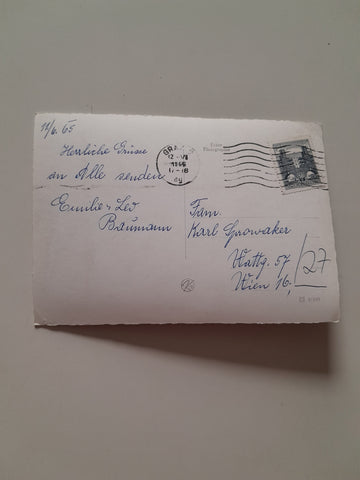 12/6. 65
Herzliche Grüsse
an Alle senden
Emilie u Leo
Baumann
GRAZ
12.-VI
1965
17-18
Echte
Photographie
Fam.
Karl Sprowaker
Wattg. 57/27
Wien 16.